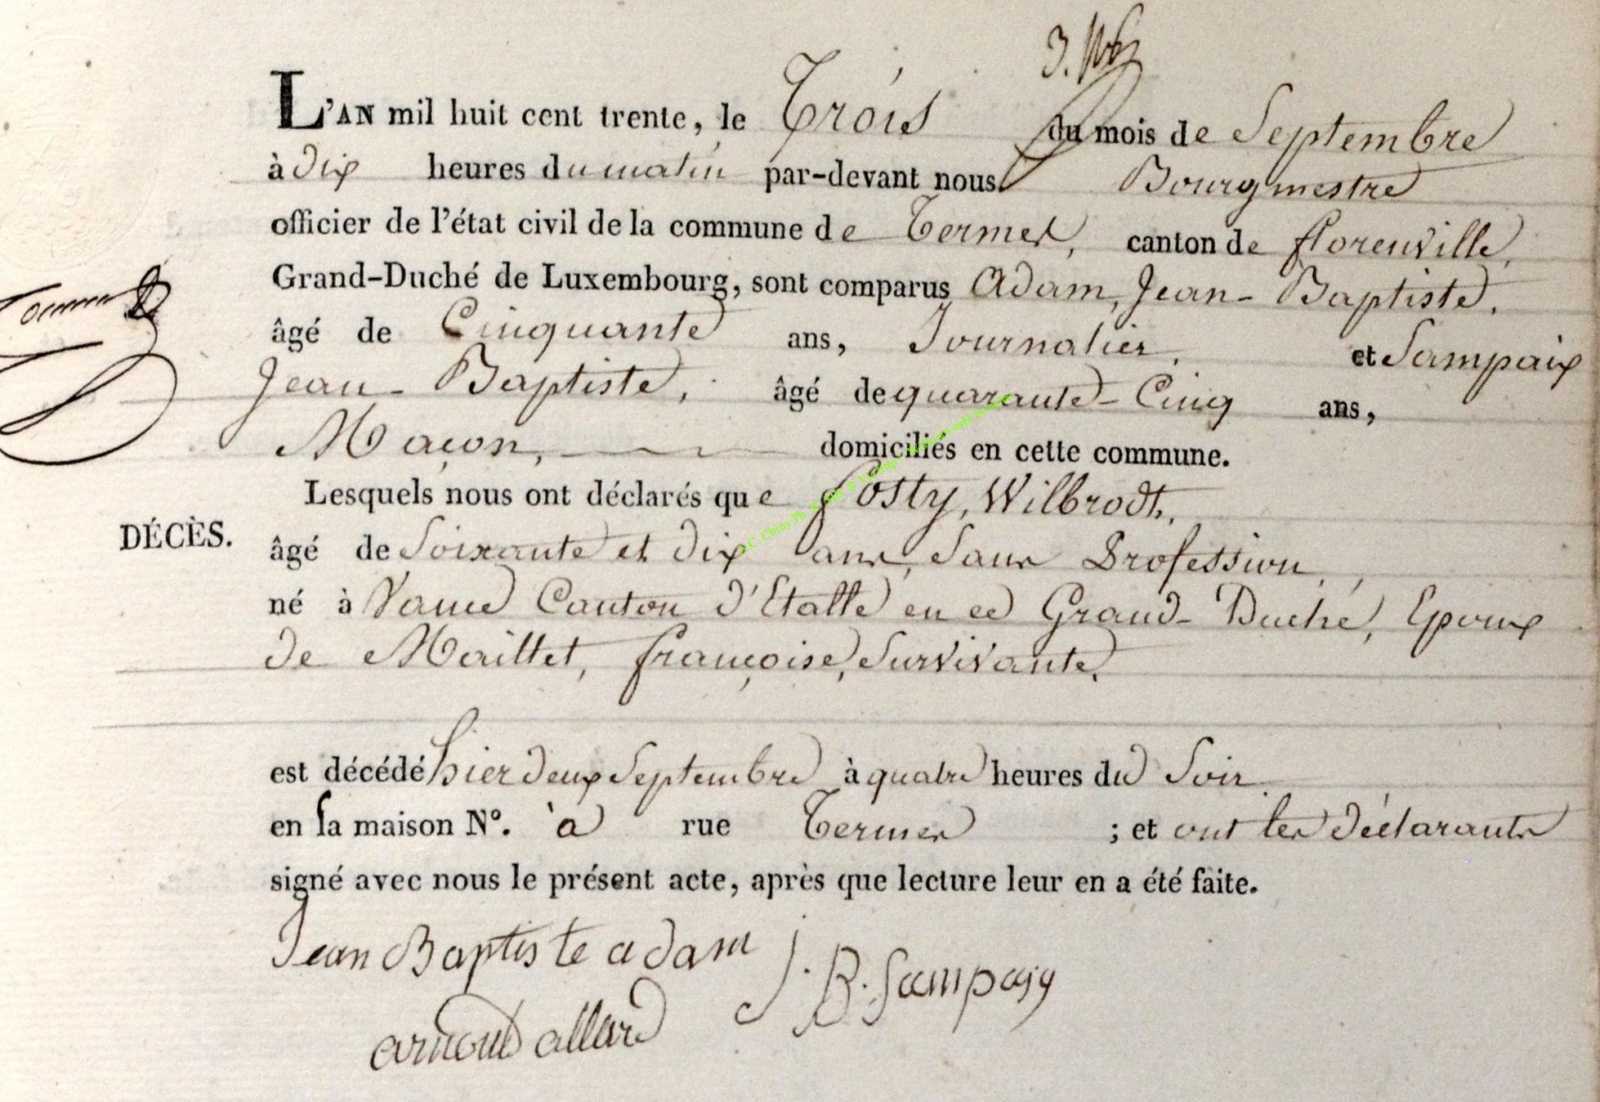 L'AN mil huit cent trente, le Trois du mois de Septembre
à dix heures du matin par-devant nous Bourgmestre
officier de l'état civil de la commune de Termes, canton de florenville,
Grand-Duché de Luxembourg, sont comparus Adam, Jean-Baptiste,
âgé de Cinquante ans, Journalier, et Sampaix
Jean-Baptiste, âgé de quarante-Cinq ans,
Maçon, domiciliés en cette commune.
Lesquels nous ont déclarés que Posty, Wilbrodt,
DÉCÈS.
âgé de Soixante et dix ans, Sans Profession,
né à Vance Canton d'Etalle en ce Grand-Duché, Epoux
de Maillet, françoise, Survivante,
est décédé hier deux Septembre à quatre heures du Soir
en la maison N°. à rue Termes ; et ont les déclarants
signé avec nous le présent acte, après que lecture leur en a été faite.
Jean Baptiste adam J. B. Sampaix
arnould allard